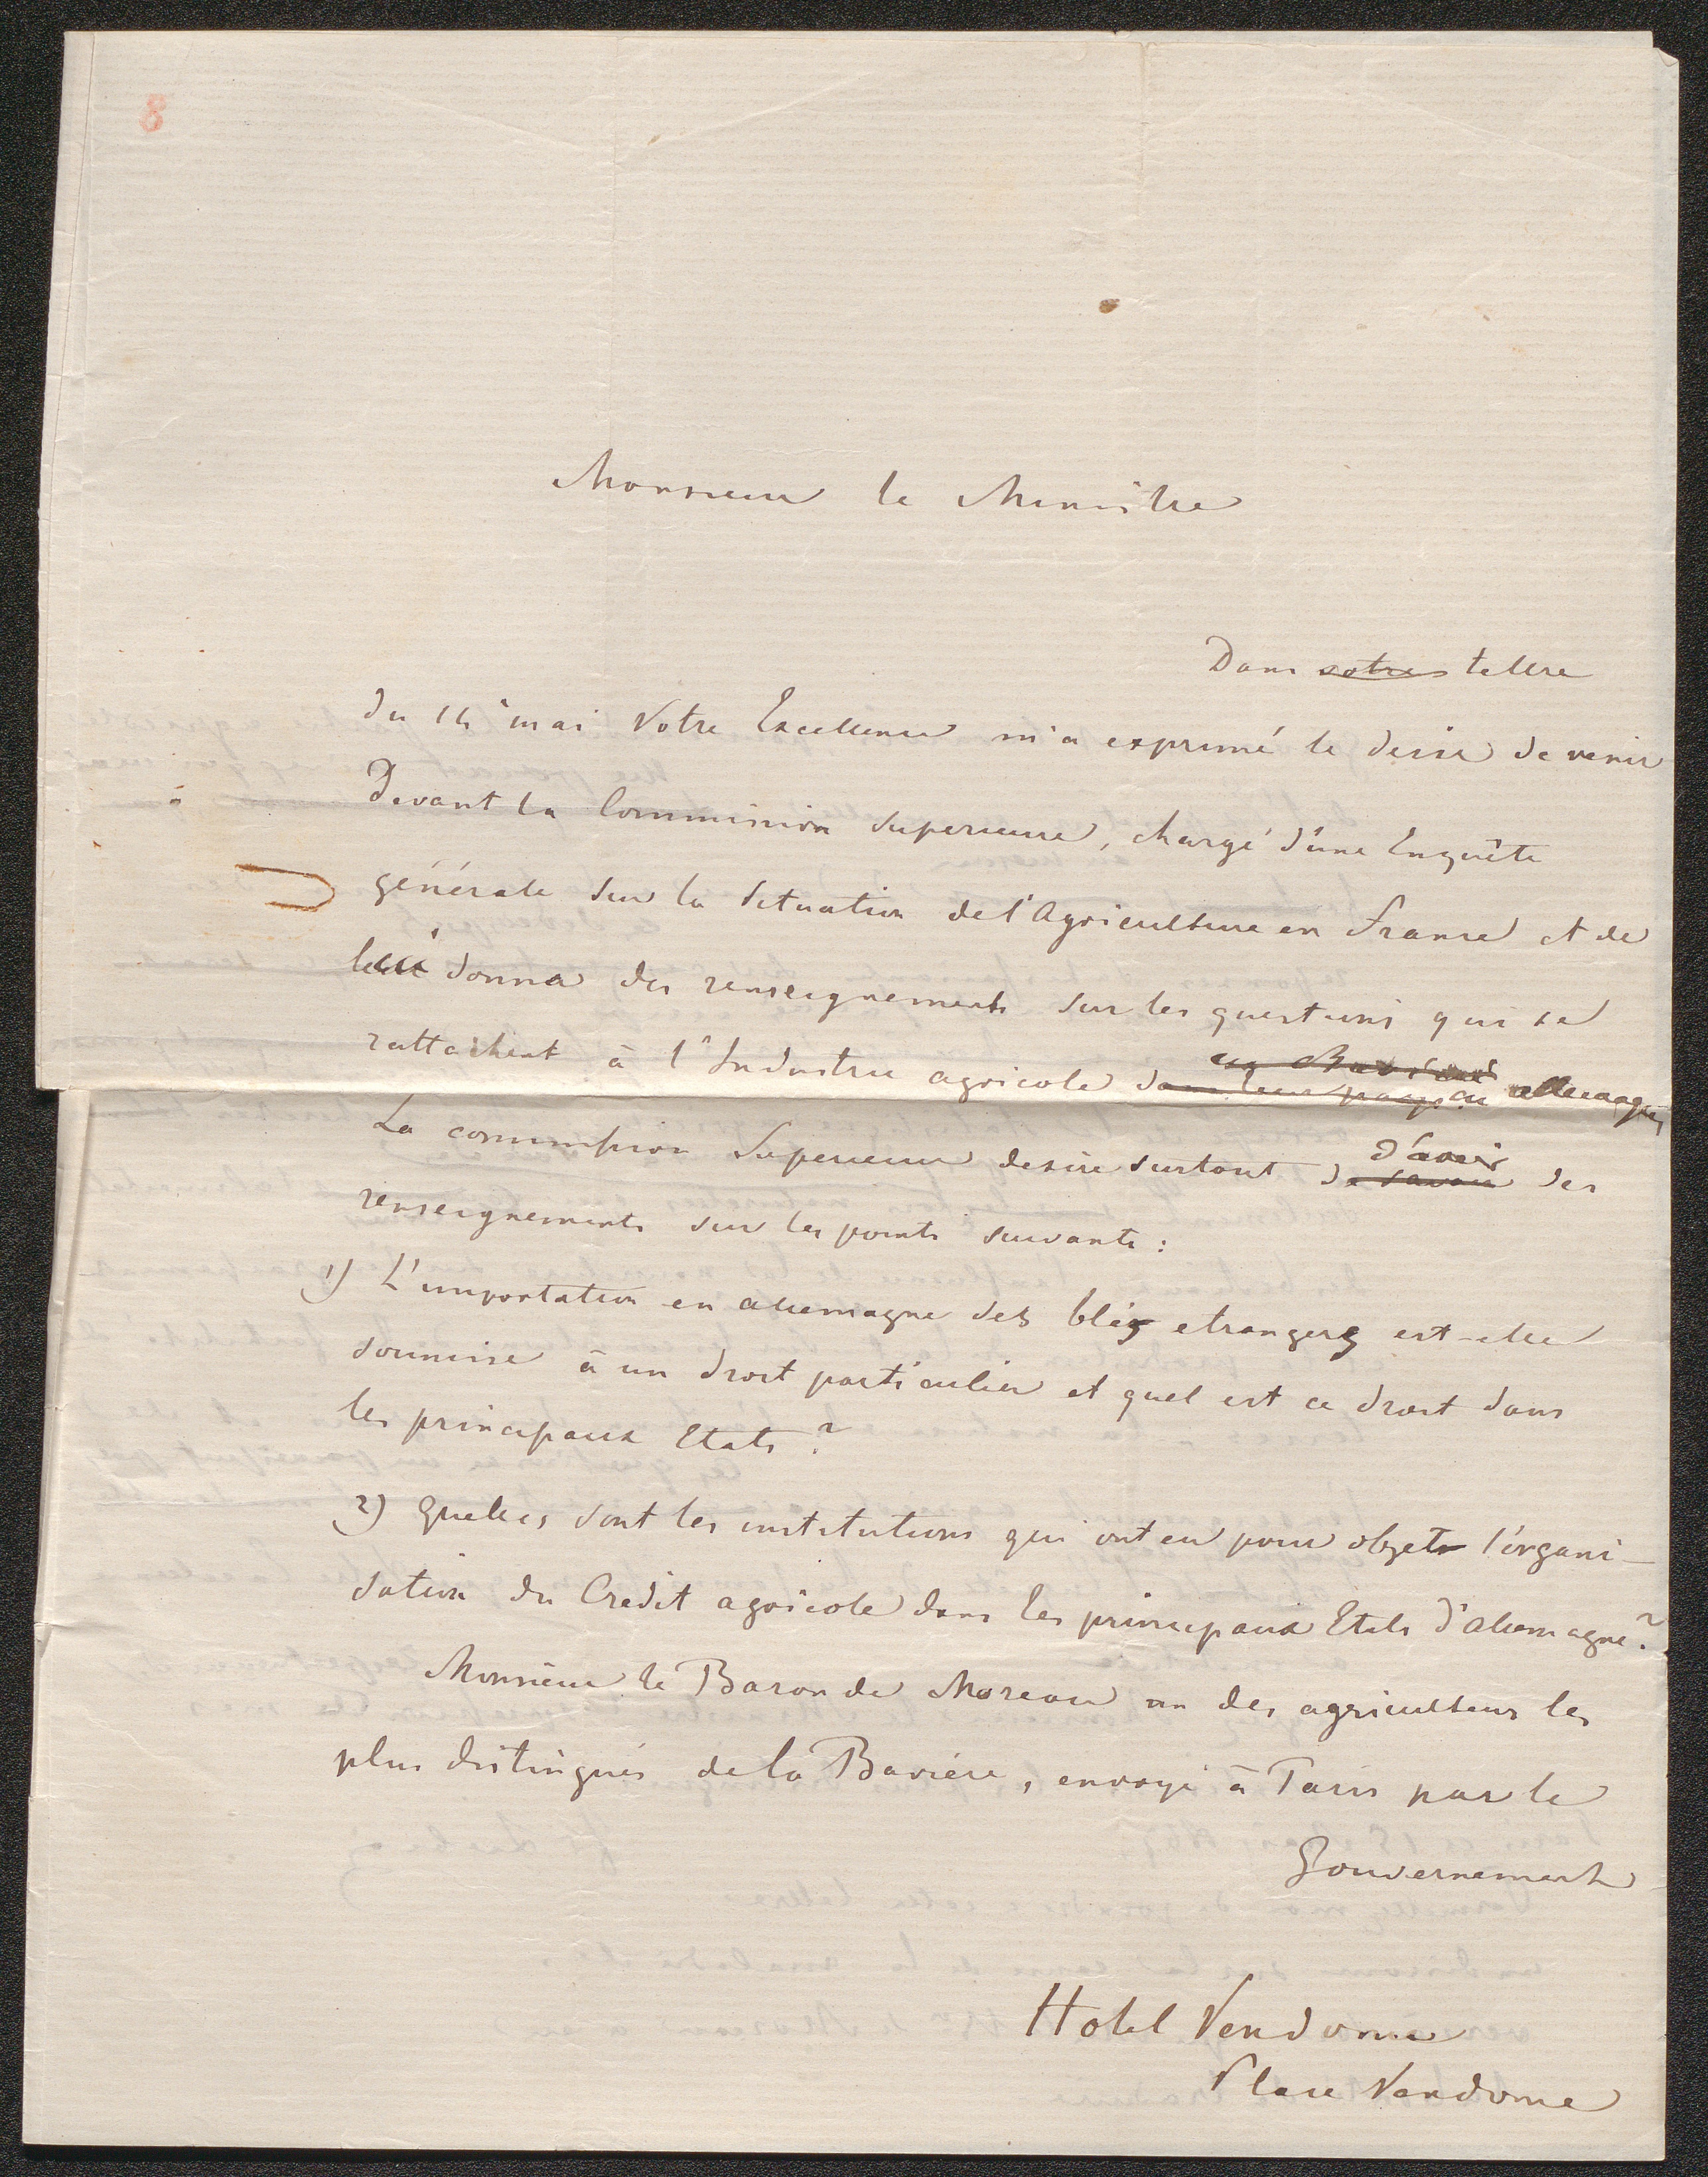 8
Monsieur le Ministre
Dans votre lettre
du 14 mai Votre Excellence m'a exprimé le desir de venir
Devant la Commission superieure, chargé d'une Enquête
générale sur la situation de l'Agriculture en France et de
lui donner des renseignements sur les questions qui se
en Baviere
rattachent à l'Industrie agricole dans leur pays en allemagne,
d'avoir
La commission Superieure desire surtout de savoir des
renseignements sur les points suivants:
1) L'importation en allemagne des blés etrangers est-elle
soumise à un droit particulier et quel est ce droit dans
les principaux Etats?
2) Quelles sont les institutions qui ont eu pour objet l'organi-
sation du Credit agricole dans les principaux Etats d'allemagne?
Monsieur le Baron de Moreau un des agriculteurs les
plus distingués de la Baviére, envoyé à Paris par le
Gouvernement
Hotel Vendome
Place Vendome